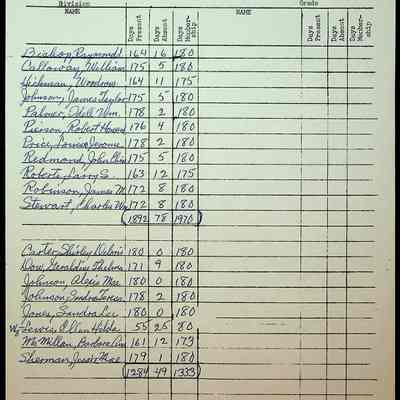 Division Grade
NAME Days Present Days Absent Days Member-ship NAME Days Present Days Absent Days Member-ship
Bishop, Raymond 164 16 180
Callaway, William 175 5 180
Hickman, Woodrow 164 11 175
Johnson, James Taylor 175 5 180
Palmer, Odell Wm. 178 2 180
Pierson, Robert 176 4 180
Price, Jerome 178 2 180
Redmond, John 175 5 180
Roberts, Larry S. 163 12 175
Robinson, James M. 172 8 180
Stewart, Charles Wm 172 8 180
1892 78 1970
Carter, Shirley 180 0 180
Dow, Geraldine Thelma 171 9 180
Johnson, Alexis Mae 180 0 180
Johnson, Sandra 178 2 180
Jones, Sandra Lee 180 0 180
Lewis, Ellen Hilda 55 25 80
McMillan, Barbara Ann 161 12 173
Sherman, Jessie Mae 179 1 180
1284 49 1333